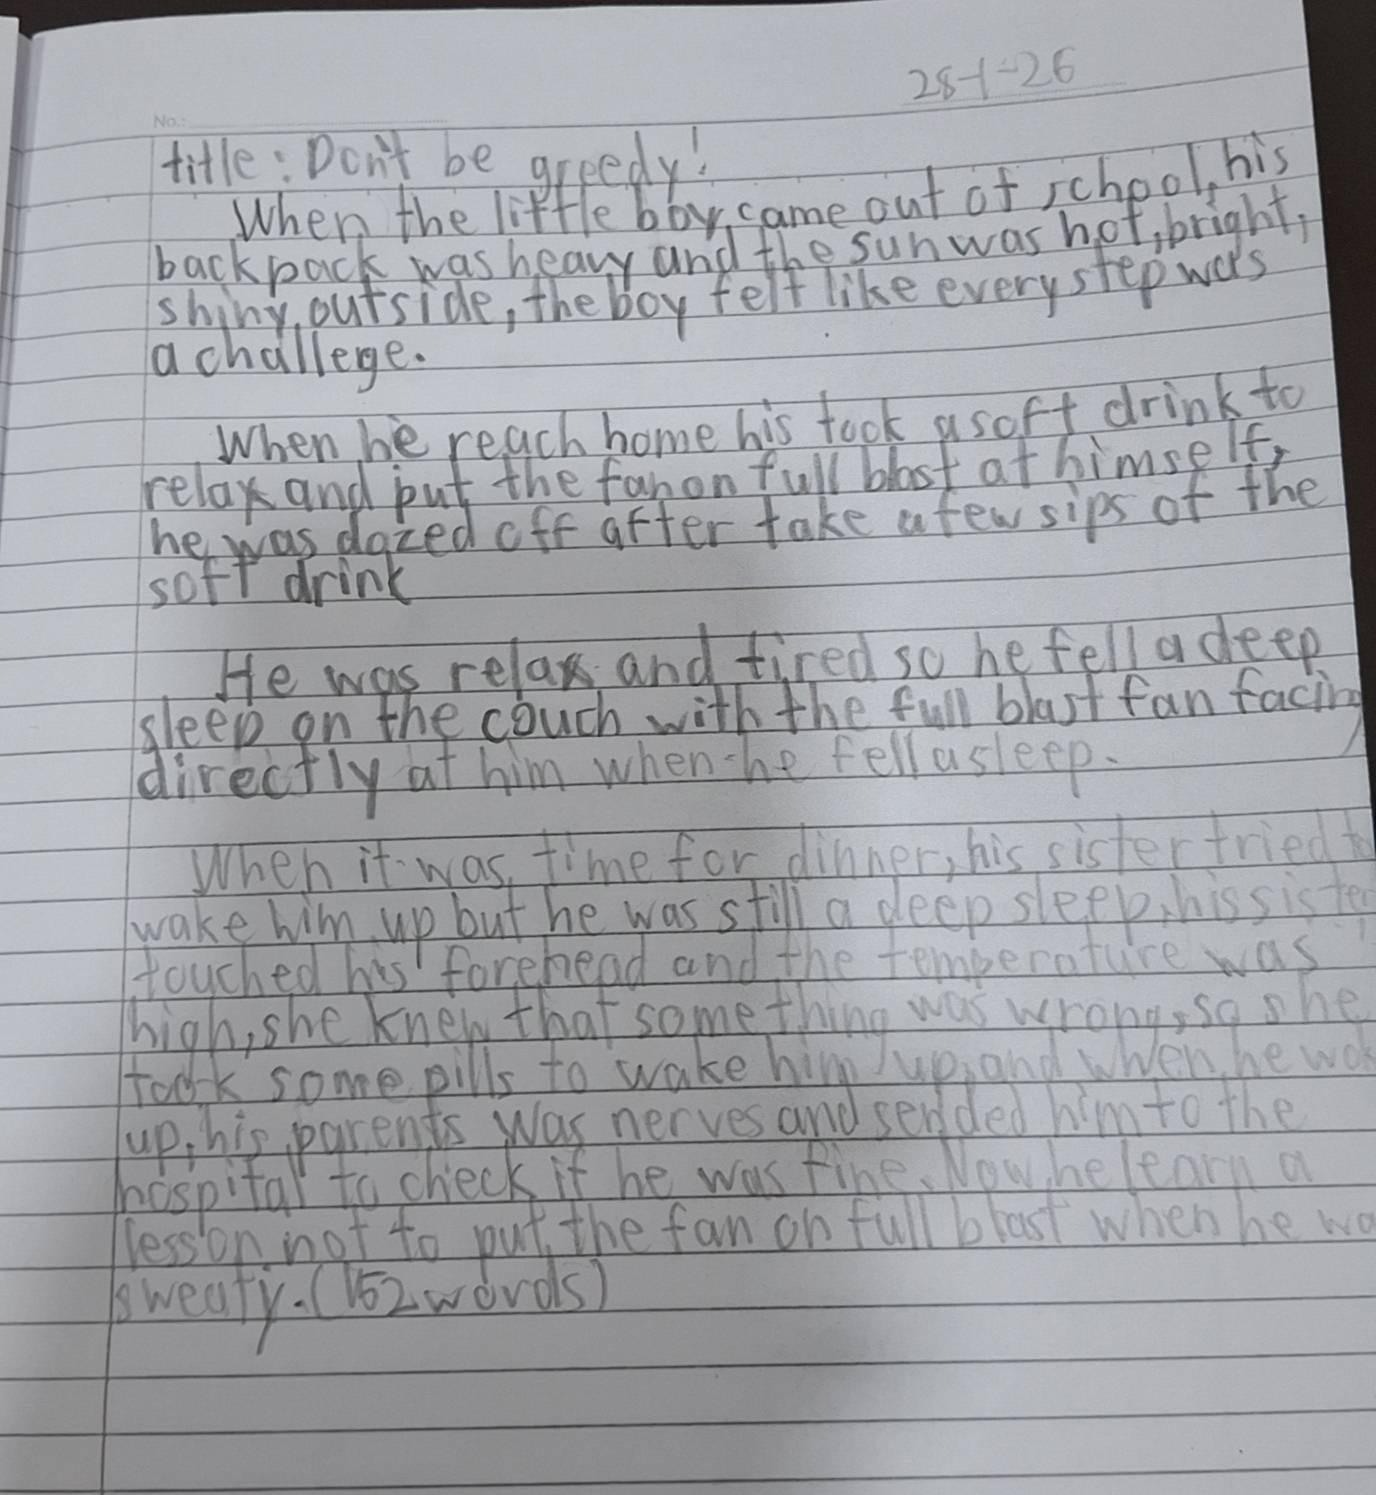 28-1-26
No.:
title: Don't be greedy!
When the little boy came out of school, his
backpack was heavy and the sun was hot, bright,
shiny outside, the boy felt like every step was
a challege.
When he reach home his took a soft drink to
relax and put the fan on full blast at himself,
he was dozed off after take a few sips of the
soft drink
He was relax and tired so he fell a deep
sleep on the couch with the full blast fan facing
directly at him when he fell asleep.
When it was time for dinner, his sister tried to
wake him up but he was still a deep sleep, his sister
touched his forehead and the temperature was
high, she knew that something was wrong, so she
took some pills to wake him up, and when he wok
up, his parents was nerves and sended him to the
hospital to check if he was fine. Now he learn a
lesson not to put the fan on full blast when he wa
sweaty. (152 words)